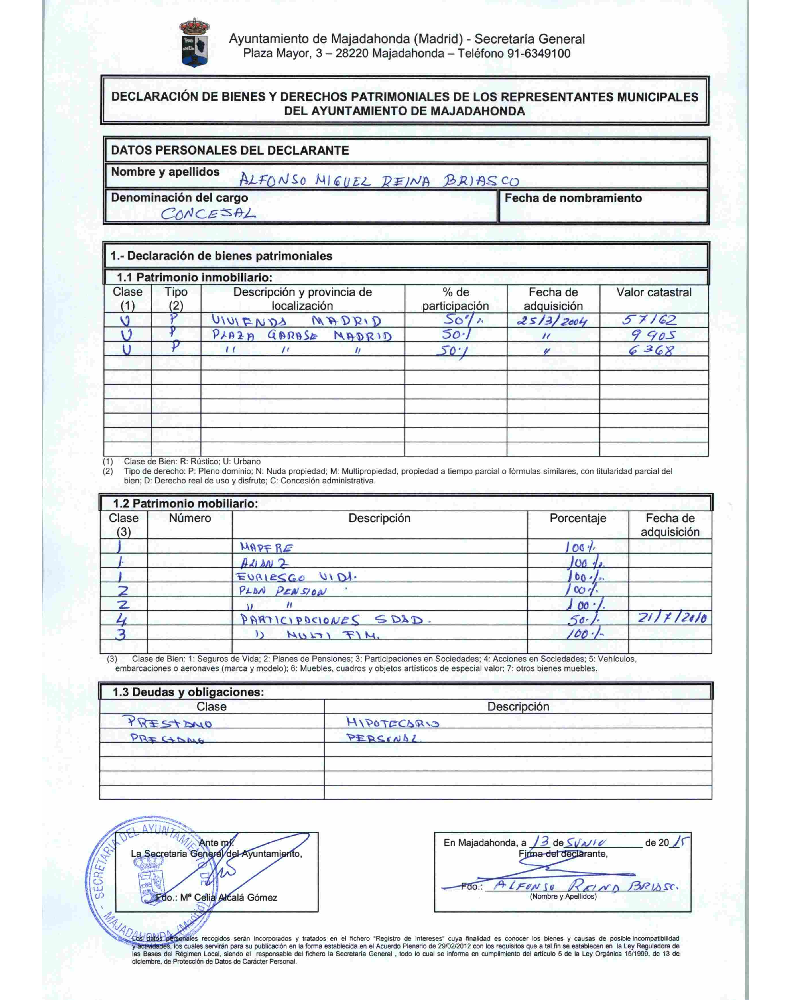 Ayuntamiento de Majadahonda (Madrid) - Secretaría General
Plaza Mayor, 3 – 28220 Majadahonda – Teléfono 91-6349100
DECLARACIÓN DE BIENES Y DERECHOS PATRIMONIALES DE LOS REPRESENTANTES MUNICIPALES
DEL AYUNTAMIENTO DE MAJADAHONDA
DATOS PERSONALES DEL DECLARANTE
Nombre y apellidos ALFONSO MIGUEL REINA BRIASCO
Denominación del cargo Fecha de nombramiento
CONCEJAL
1.- Declaración de bienes patrimoniales
1.1 Patrimonio inmobiliario:
Clase Tipo Descripción y provincia de % de Fecha de Valor catastral
(1) (2) localización participación adquisición
U P VIVIENDA MADRID 50% 25/3/2004 57162
U P PLAZA GARAJE MADRID 50% " 9905
U P " " " 50% " 6368
(1) Clase de Bien: R: Rústico; U: Urbano
(2) Tipo de derecho: P: Pleno dominio; N: Nuda propiedad; M: Multipropiedad, propiedad a tiempo parcial o fórmulas similares, con titularidad parcial del
bien; D: Derecho real de uso y disfrute; C: Concesión administrativa.
1.2 Patrimonio mobiliario:
Clase Número Descripción Porcentaje Fecha de
(3) adquisición
1 MAPFRE 100%
1 ALIANZ 100%
1 EURIESGO VIDA 100%
2 PLAN PENSION 100%
2 " " 100%
4 PARTICIPACIONES SDAD. 50% 21/7/2010
3 " MULTI FIM. 100%
(3) Clase de Bien: 1: Seguros de Vida; 2: Planes de Pensiones; 3: Participaciones en Sociedades; 4: Acciones en Sociedades; 5: Vehículos,
embarcaciones o aeronaves (marca y modelo); 6: Muebles, cuadros y objetos artísticos de especial valor; 7: otros bienes muebles.
1.3 Deudas y obligaciones:
Clase Descripción
PRESTAMO HIPOTECARIO
PRESTAMO PERSONAL
Ante mí,
La Secretaria General del Ayuntamiento,
Fdo.: Mª Celia Alcalá Gómez
SECRETARIA DEL AYUNTAMIENTO
MAJADAHONDA (Madrid)
En Majadahonda, a 13 de JUNIO de 2015
Firma del declarante,
Fdo.: ALFONSO REINA BRIASC.
(Nombre y Apellidos)
Los datos personales recogidos serán incorporados y tratados en el fichero "Registro de Intereses" cuya finalidad es conocer los bienes y causas de posible incompatibilidad
y actividades, los cuales servirán para su publicación en la forma establecida en el Acuerdo Plenario de 29/02/2012 con los requisitos que a tal fin se establecen en la Ley Reguladora de
las Bases del Régimen Local, siendo el responsable del fichero la Secretaría General , todo lo cual se informa en cumplimiento del artículo 5 de la Ley Orgánica 15/1999, de 13 de
diciembre, de Protección de Datos de Carácter Personal.